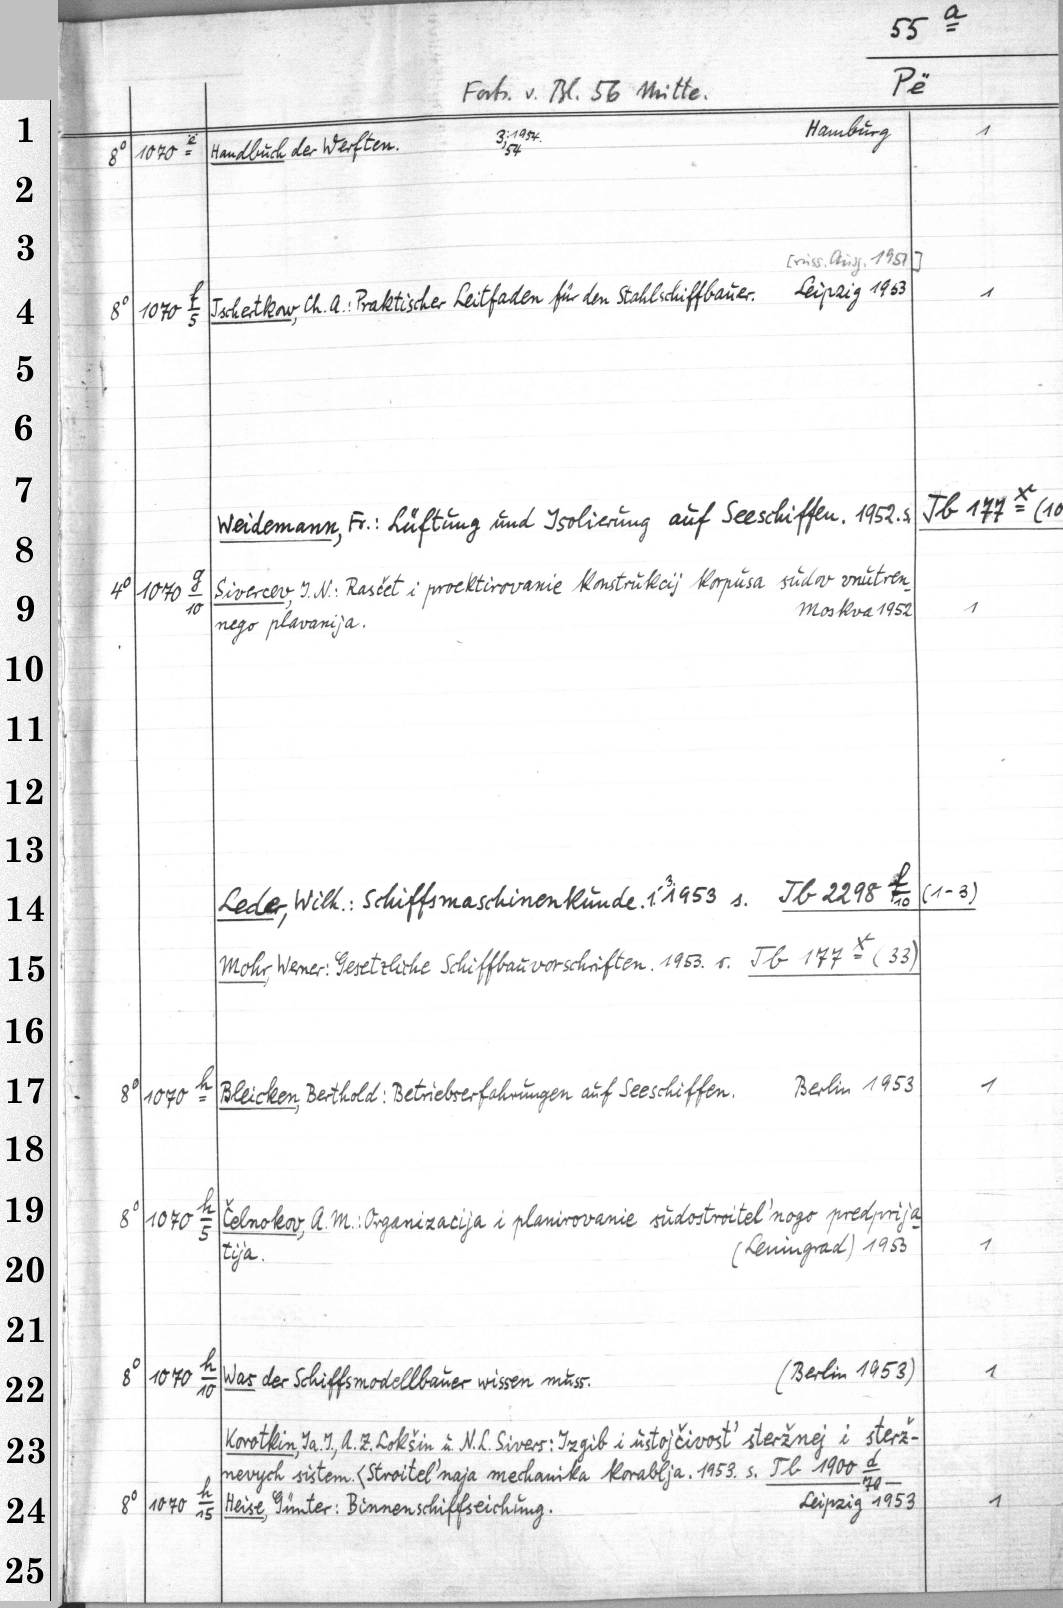 55 a
Pë
Forts. v. Bl. 56 Mitte.
1
8° 1070 e Handbuch der Werften. 3; 1954. 54 Hamburg 1
2
3
[russ. Ausg. 1951]
4
8° 1070 f/5 Tschertkow, Ch. A.: Praktischer Leitfaden für den Stahlschiffbauer. Leipzig 1953 1
5
6
7
Weidemann, Fr.: Lüftung und Isolierung auf Seeschiffen. 1952. s. Tb 177 x (10
8
4° 1070 g/10 Sivercev, I. N.: Rasčet i proektirovanie konstrukcij korpusa sudov vnutren-
9
nego plavanija. Moskva 1952 1
10
11
12
13
14
Leder, Wilh.: Schiffsmaschinenkunde. 1.3 1953 s. Tb 2298 f/10 (1-3)
15
Mohr, Werner: Gesetzliche Schiffbauvorschriften. 1953. s. Tb 177 x (33)
16
17
8° 1070 h Bleicken, Berthold: Betriebserfahrungen auf Seeschiffen. Berlin 1953 1
18
19
8° 1070 h/5 Čelnokov, A. M.: Organizacija i planirovanie sudostroitel'nogo predprija-
tija. (Leningrad) 1953 1
20
21
22
8° 1070 h/10 Was der Schiffsmodellbauer wissen muss. (Berlin 1953) 1
23
Korotkin, Ja. I., A. Z. Lokšin u. N. L. Sivers: Izgib i ustojčivost' steržnej i sterž-
nevych sistem. <Stroitel'naja mechanika korablja. 1953. s. Tb 1900 d/70
24
8° 1070 h/15 Heise, Günter: Binnenschiffseichung. Leipzig 1953 1
25